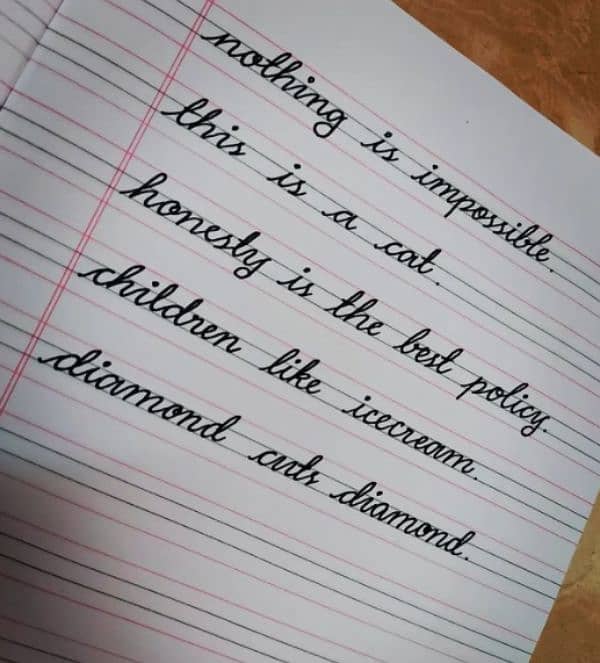 nothing is impossible.
this is a cat.
honesty is the best policy.
children like icecream.
diamond cuts diamond.